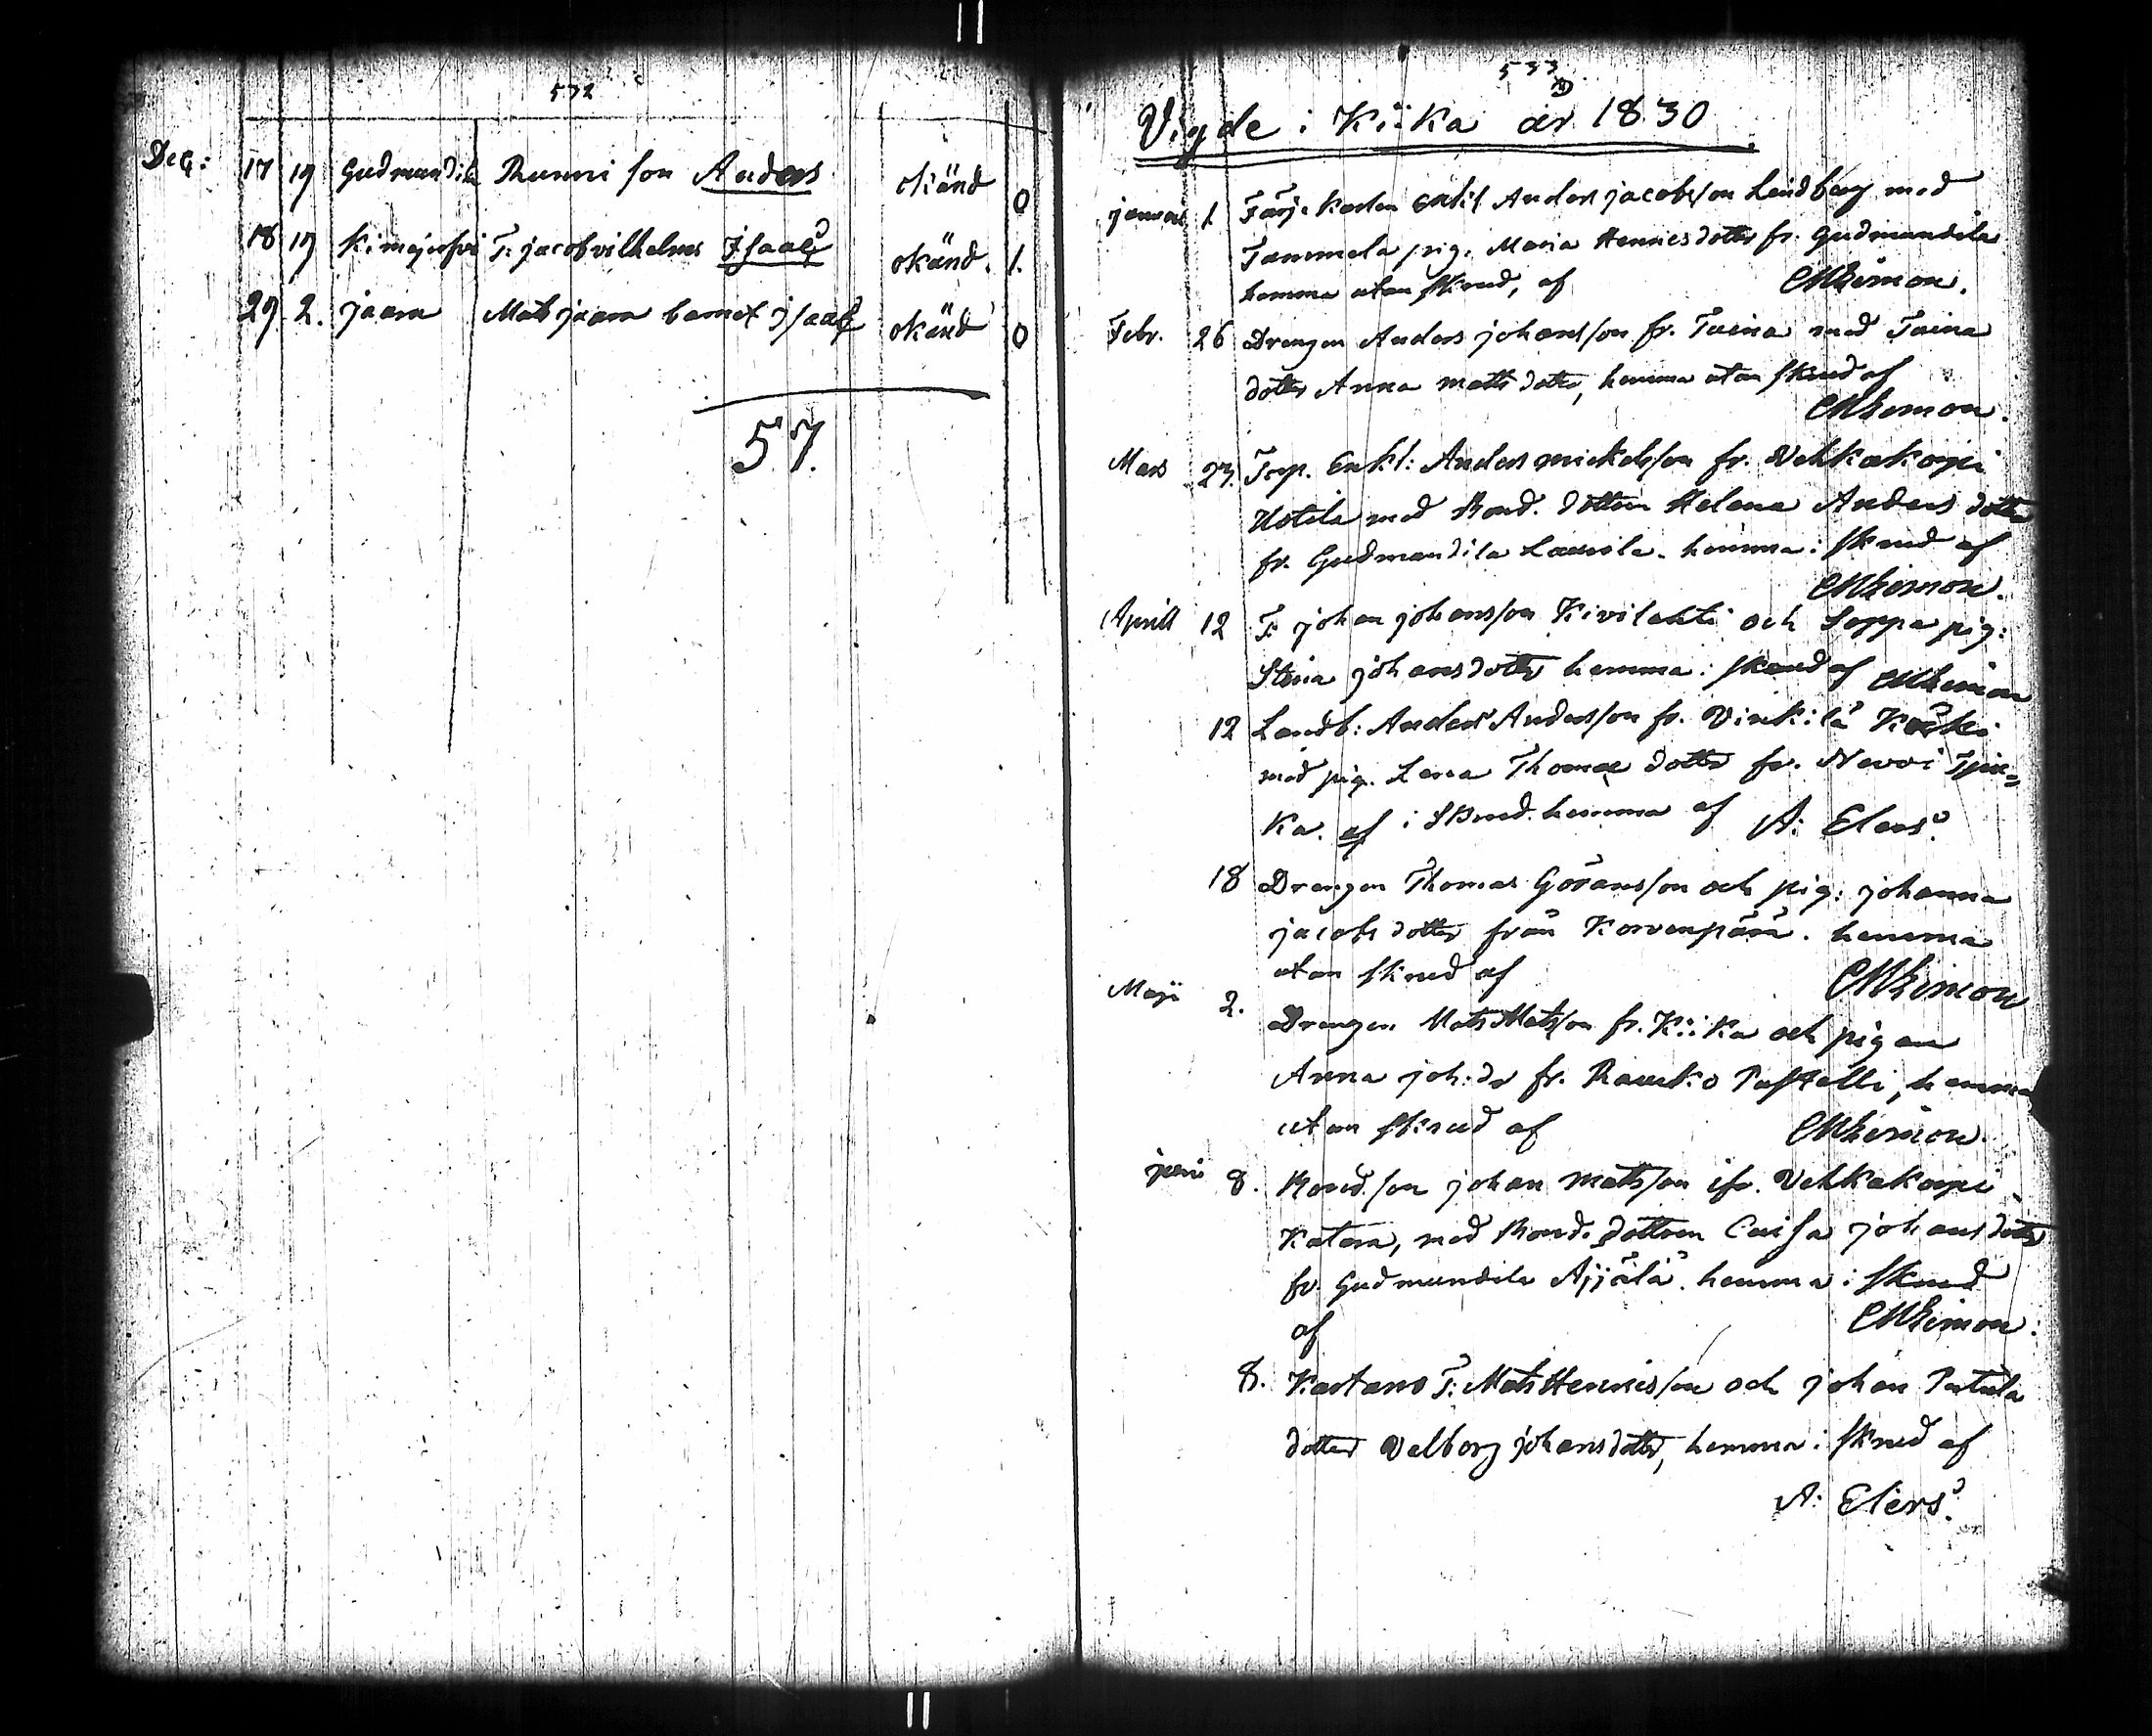 532
Dec: 17 19 Gudmundila Runni son Anders okänd 0
18 19 Kimajerfvi T: jacob vilhelms Isaac okänd. 1.
29. 2. jaara Mats jaara barnet jsaac okänd 0
57.
533
Vigde i Kiika år 1830
januari 1 Färje karlen enkl Anders jacobsson Lindberg med
Tammela pig. Maria Henricsdotter fr. Gudmundila
hemma utan skrud, af CMLimon.
Febr. 26 Drengen Anders johansson fr. Tuina med Tuina
dotter Anna matts dotter, hemma utan skrud af
CMLimon.
Mars 27. Torp. Enkl: Anders mickelsson fr. Vehkakorpi
Uotila med Bond. dottren Helena Anders dotter
fr. Gudmundila Laurila. hemma i skrud af
CMLimon.
Aprill 12 T: johan johansson Kivilahti och Soppa pig:
Stina johansdotter hemma i skrud af CMLimon
12 Landb: Anders Andersson fr. Vinkilä Koski
med pig. Lena Thomæ dotter fr. Nevoi
Ka. af i skrud hemma af A: Elers.
18 Drengen Thomas Göransson och pig: johanna
jacobs dotter från Korvenpärä. hemma
utan skrud af CMLimon
Maji 2. Drengen Mats Matsson fr. Kiika och pigan
Anna joh:dr fr. Rauko Pastelli, hemma
utan skrud af CMLimon.
juni 8. Bond.son johan Matsson ifr. Vehkakorpi
Katara, med Bond. dottren Caisa johans dotter
fr. Gudmundila Äijälä. hemma i skrud
af CMLimon.
8. Kartano T: Mats Henricsson och johan Partula
dotter Valborg johansdotter, hemma i skrud af
A: Elers.